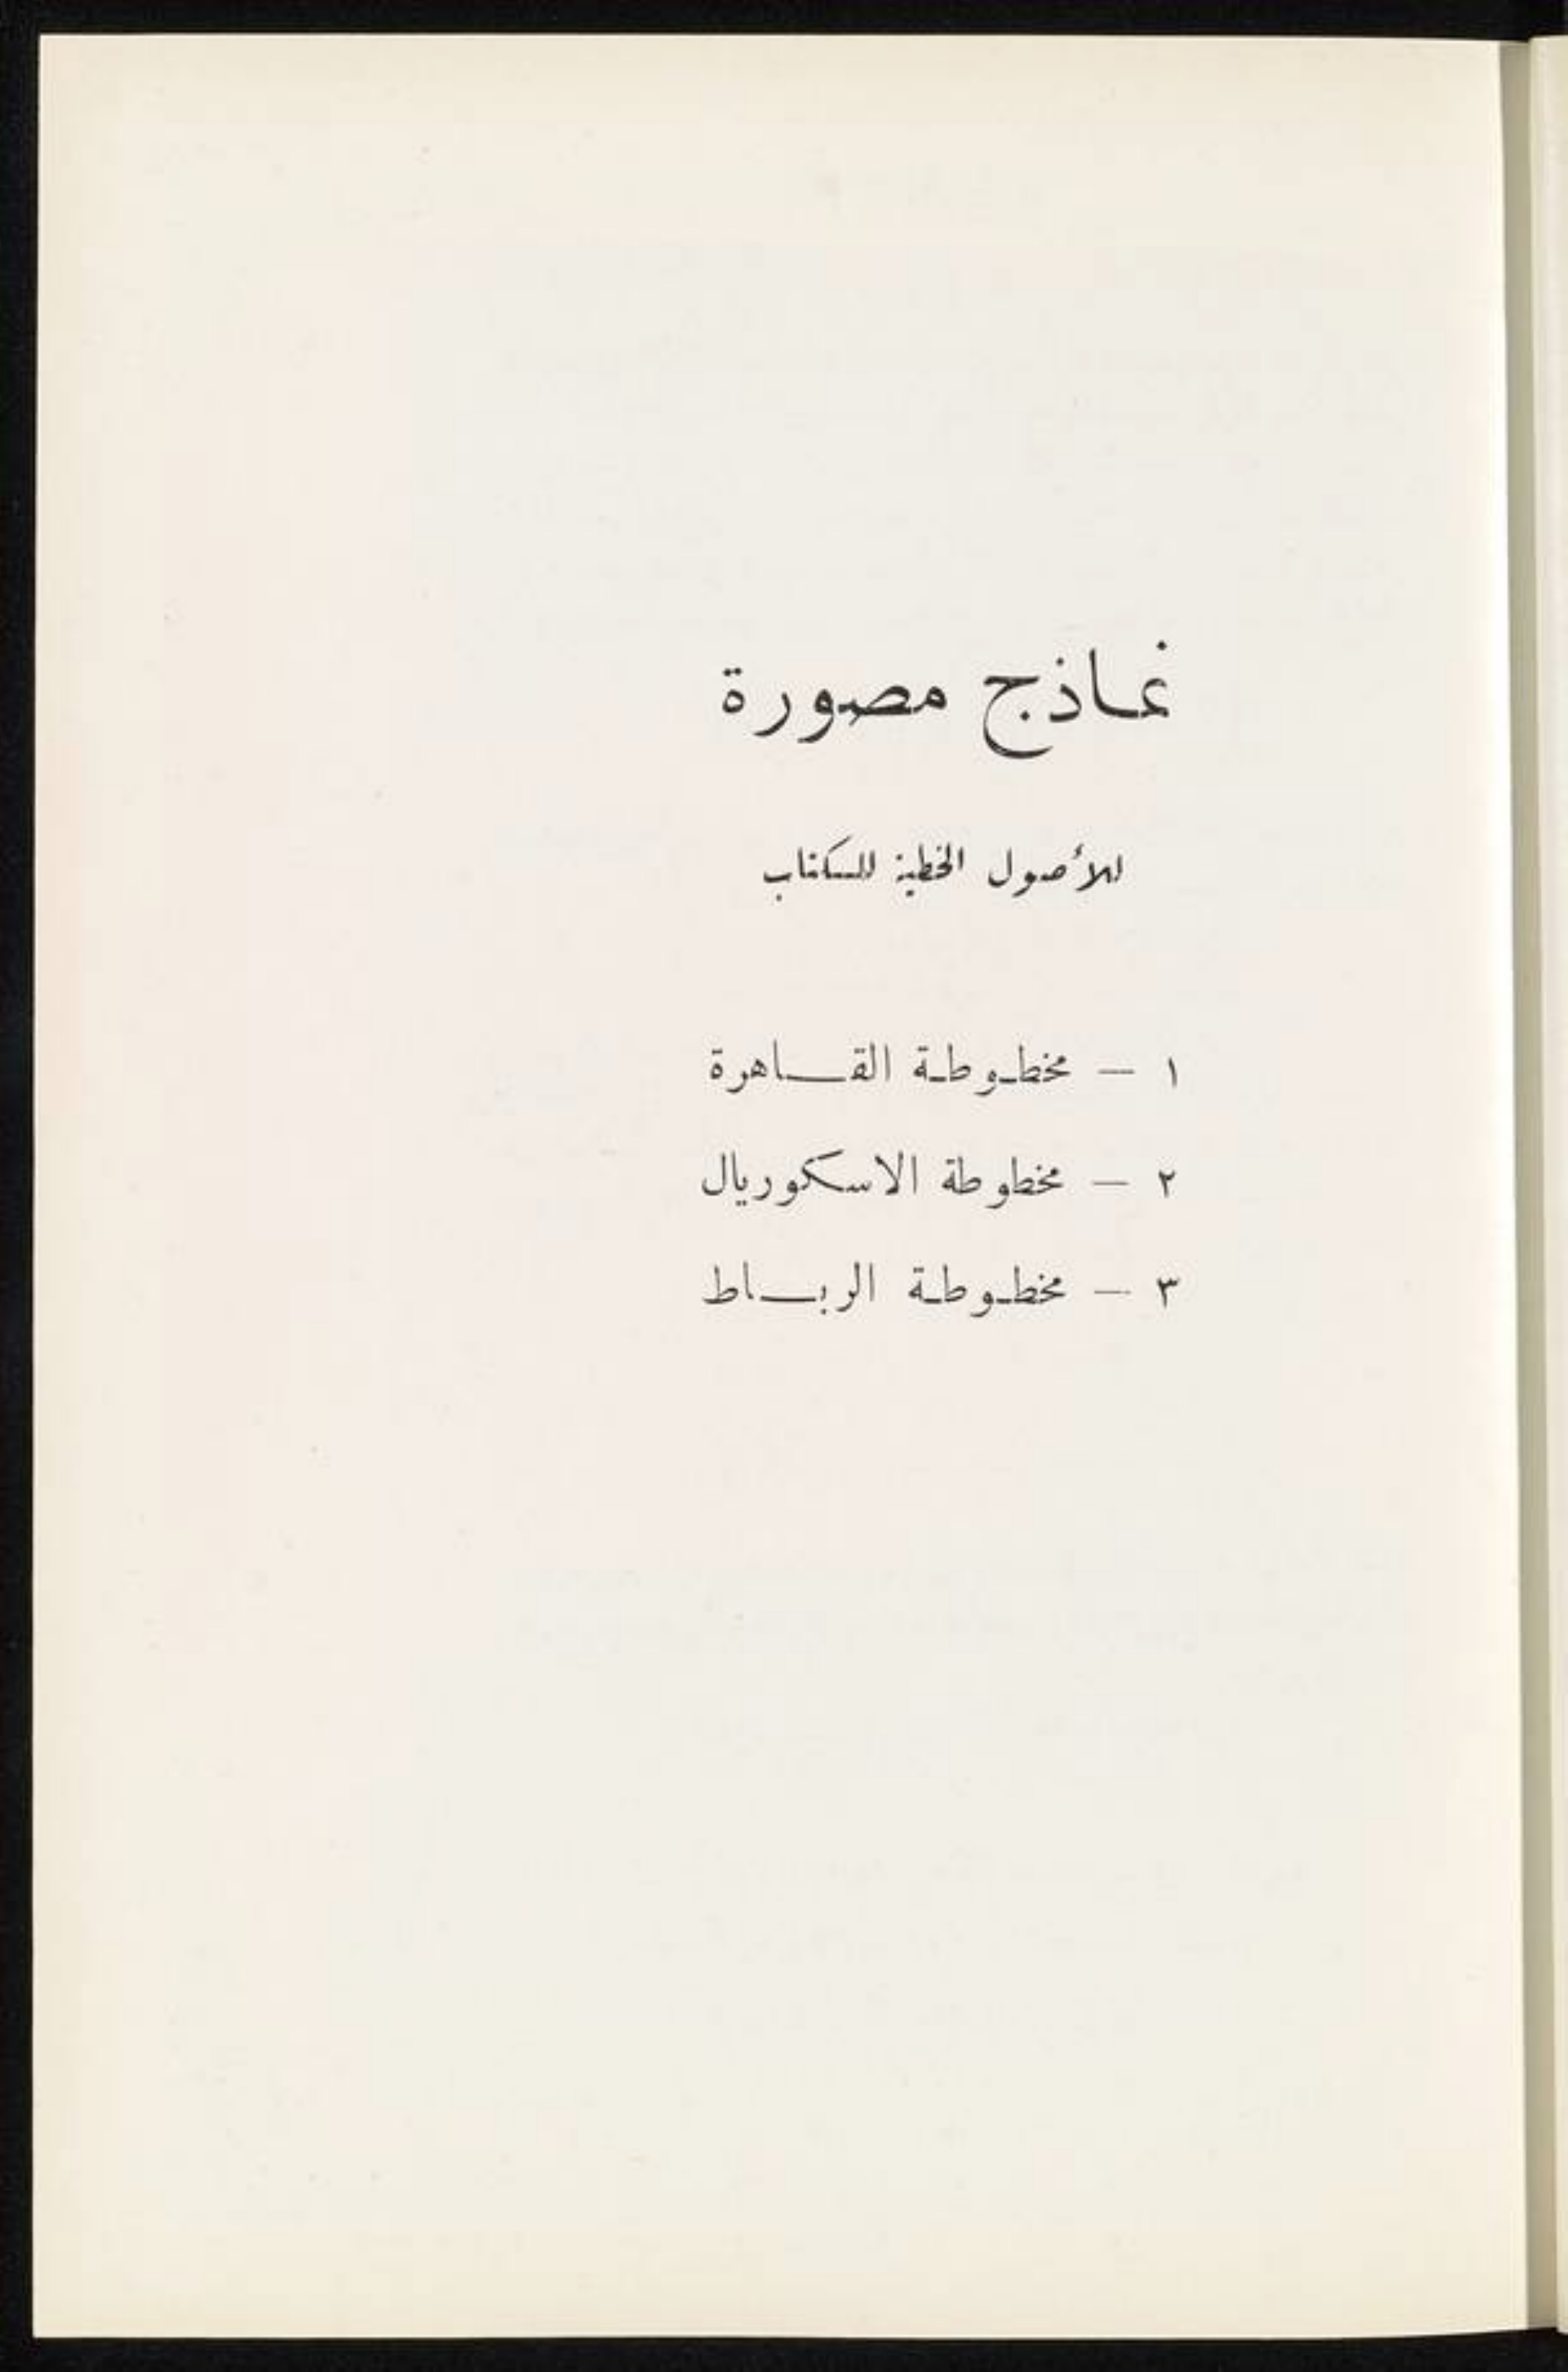 نماذج مصورة
للأصول الخطية للكتاب
١ — مخطوطة القاهرة
٢ — مخطوطة الاسكوريال
٣ — مخطوطة الرباط